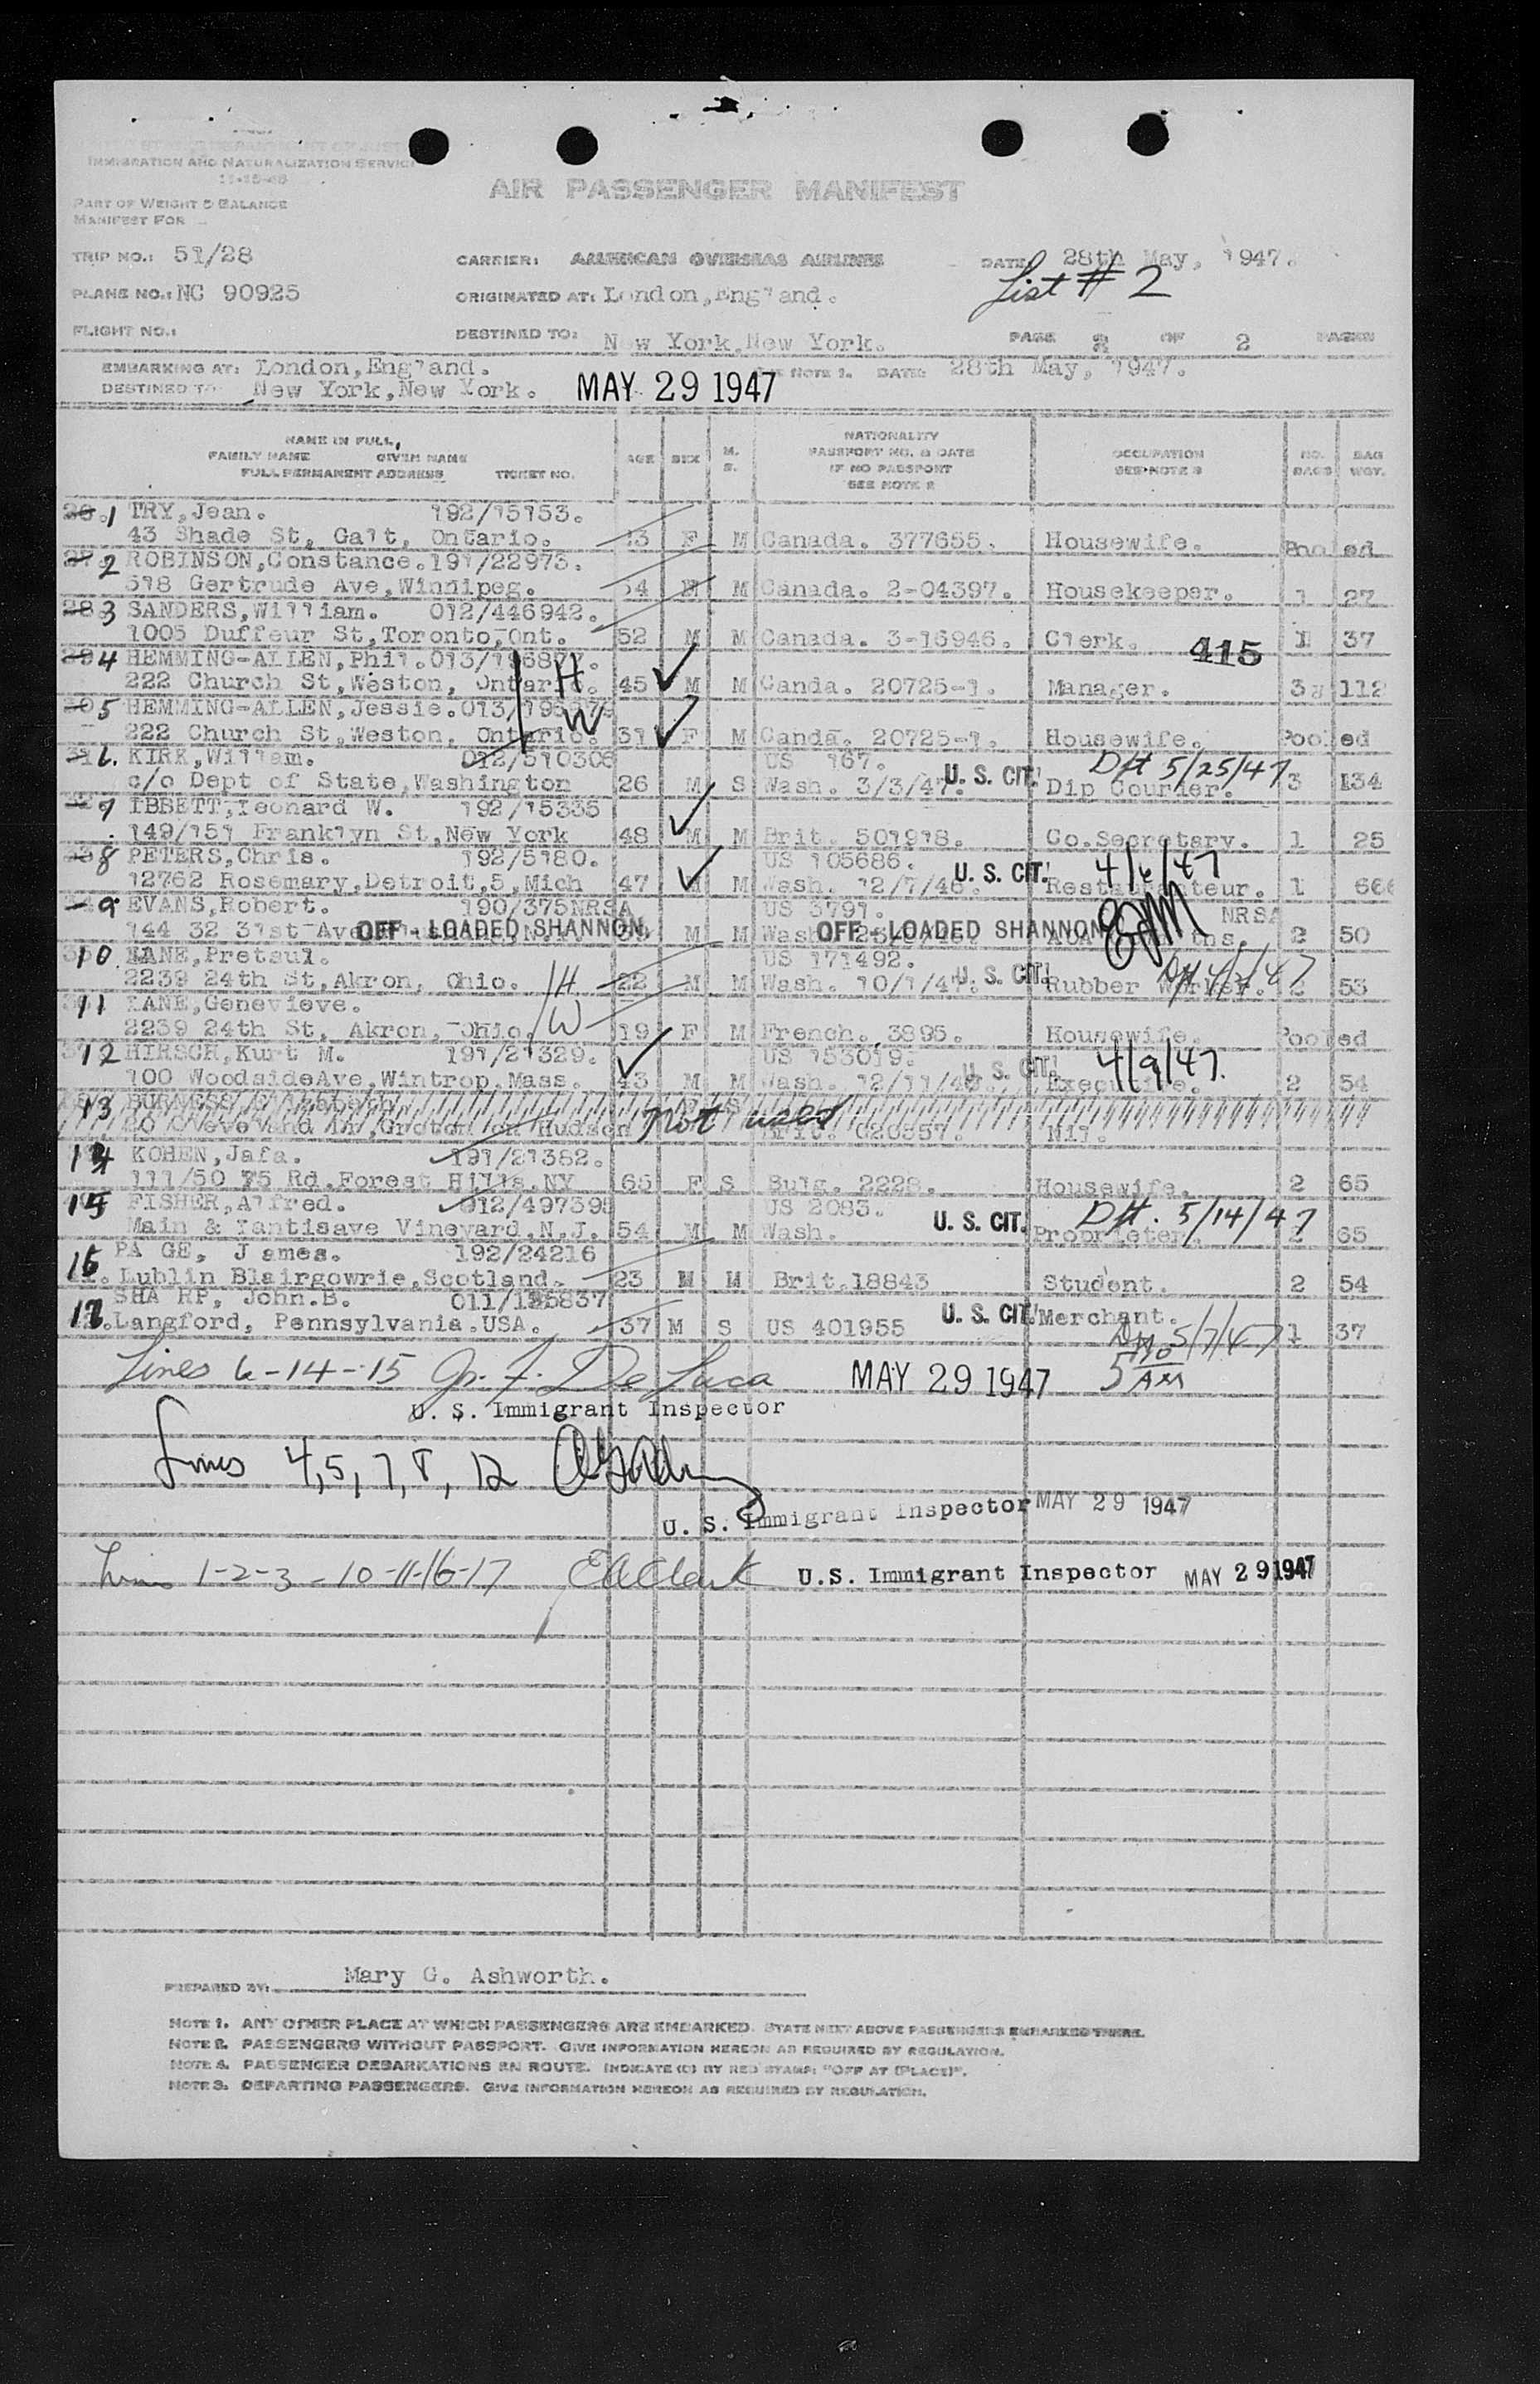 IMMIGRATION AND NATURALIZATION SERVICE
11-15-46
AIR PASSENGER MANIFEST
PART OF WEIGHT & BALANCE
MANIFEST FOR
TRIP NO.: 51/28 CARRIER: AMERICAN OVERSEAS AIRLINES DATE 28th May, 1947.
List # 2
PLANE NO.: NC 90925 ORIGINATED AT: London, England.
FLIGHT NO.: DESTINED TO: New York, New York. PAGE 2 OF 2 PAGES
EMBARKING AT: London, England. SEE NOTE 1. DATE: 28th May, 1947.
DESTINED TO New York, New York. MAY 29 1947
NAME IN FULL, FAMILY NAME GIVEN NAME FULL PERMANENT ADDRESS TICKET NO. AGE SEX M. S. NATIONALITY PASSPORT NO. & DATE IF NO PASSPORT SEE NOTE 2 OCCUPATION SEE NOTE 3 NO. BAGS BAG WGT.
1 TRY, Jean. 192/15153.
43 Shade St, Galt, Ontario. F M Canada. 377655. Housewife. Pooled
2 ROBINSON, Constance. 191/22973.
578 Gertrude Ave, Winnipeg. 54 F M Canada. 2-04397. Housekeeper. 1 27
283 SANDERS, William. 012/446942.
1005 Duffeur St, Toronto, Ont. 52 M M Canada. 3-16946. Clerk. 1 37
415
4 HEMMING-ALLEN, Phil. 013/
222 Church St, Weston, Ontario. H 45 M M Canda. 20725-1. Manager. 3 112
5 HEMMING-ALLEN, Jessie. 013/
222 Church St, Weston, Ontario. W 31 F M Canda. 20725-1. Housewife. Pooled
6. KIRK, William. 012/510306 US 167. Dft 5/25/47
c/o Dept of State, Washington 26 M S Wash. 3/3/47. U. S. CIT. Dip Courier. 3 134
7 IBBETT, Leonard W. 192/15335
149/151 Franklyn St, New York 48 M M Brit. 501918. Co. Secretary. 1 25
8 PETERS, Chris. 192/5180. US 105686. U. S. CIT. 4/6/47
12762 Rosemary, Detroit, 5, Mich 47 M M Wash. 12/7/46. Restauranteur. 1 66
9 EVANS, Robert. 190/375NRSA US 3791. NRSA
144 32 31st Ave OFF - LOADED SHANNON M M Wash OFF - LOADED SHANNON 2 50
10 LANE, Pretaul. US 171492.
2239 24th St, Akron, Ohio. H 22 M M Wash. 10/1/47. U. S. CIT. Rubber Worker. 53
11 LANE, Genevieve.
2239 24th St, Akron, Ohio. W 19 F M French. 3895. Housewife. Pooled
12 HIRSCH, Kurt M. 191/21329. US 153019. 4/9/47.
100 WoodsideAve, Wintrop, Mass. 43 M M Wash. 12/11/46. U. S. CIT. Executive. 2 54
13
Groton on Hudson not used Brit. 020557. Nil.
14 KOHEN, Jafa. 191/21382.
111/50 75 Rd. Forest Hills. NY 65 F S Bulg. 2228. Housewife. 2 65
15 FISHER, Alfred. 012/497395 US 2083. Dft. 5/14/47
Main & Lantisave Vineyard. N.J. 54 M M Wash. U. S. CIT. Proprieter. 2 65
16 PAGE, James. 192/24216
Lublin Blairgowrie, Scotland. 23 M M Brit. 18843 Student. 2 54
17 SHARP, John. B. 011/
Langford, Pennsylvania. USA. 37 M S US 401955 U. S. CIT. Merchant. 5/7/47 1 37
Lines 6-14-15 De Luca MAY 29 1947 5 AM
U. S. Immigrant Inspector
Lines 4, 5, 7, 8, 12
U. S. Immigrant Inspector MAY 29 1947
Lines 1-2-3-10-11-16-17 E A Clark U.S. Immigrant Inspector MAY 29 1947
PREPARED BY: Mary G. Ashworth.
NOTE 1. ANY OTHER PLACE AT WHICH PASSENGERS ARE EMBARKED. STATE NEXT ABOVE PASSENGERS EMBARKED THERE.
NOTE 2. PASSENGERS WITHOUT PASSPORT. GIVE INFORMATION HEREON AS REQUIRED BY REGULATION.
NOTE 4. PASSENGER DEBARKATIONS EN ROUTE. INDICATE (C) BY RED STAMP: "OFF AT (PLACE)".
NOTE 3. DEPARTING PASSENGERS. GIVE INFORMATION HEREON AS REQUIRED BY REGULATION.